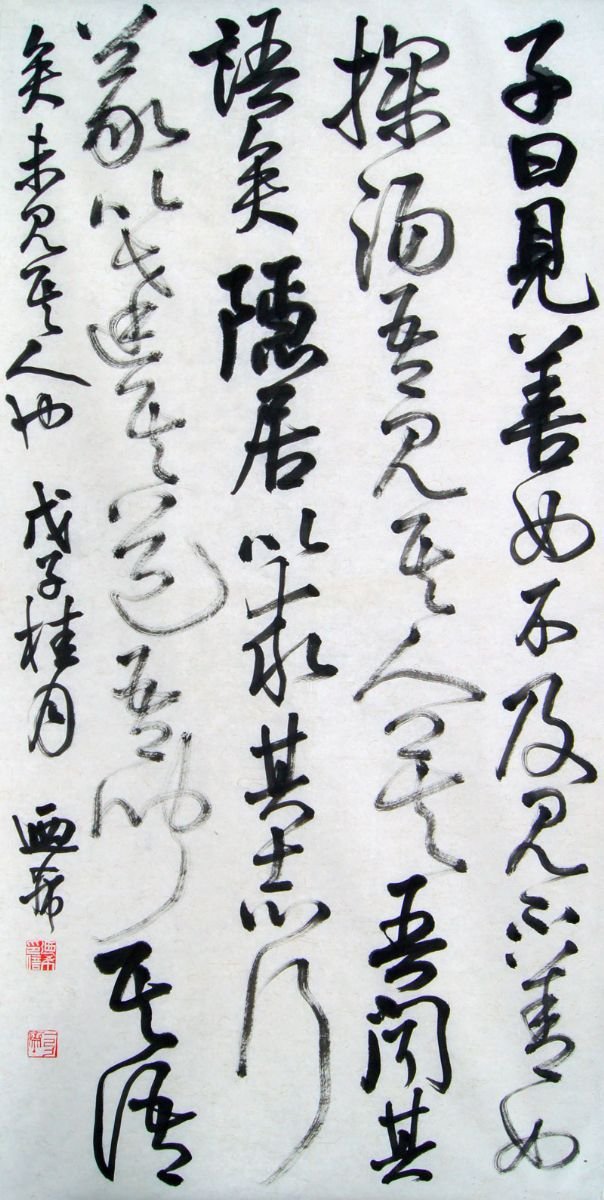 子曰見善如不及見不善如
探湯吾見其人矣吾聞其
語矣隱居以求其志行
義以達其道吾聞其語
矣未見其人也 戊子桂月 迺希